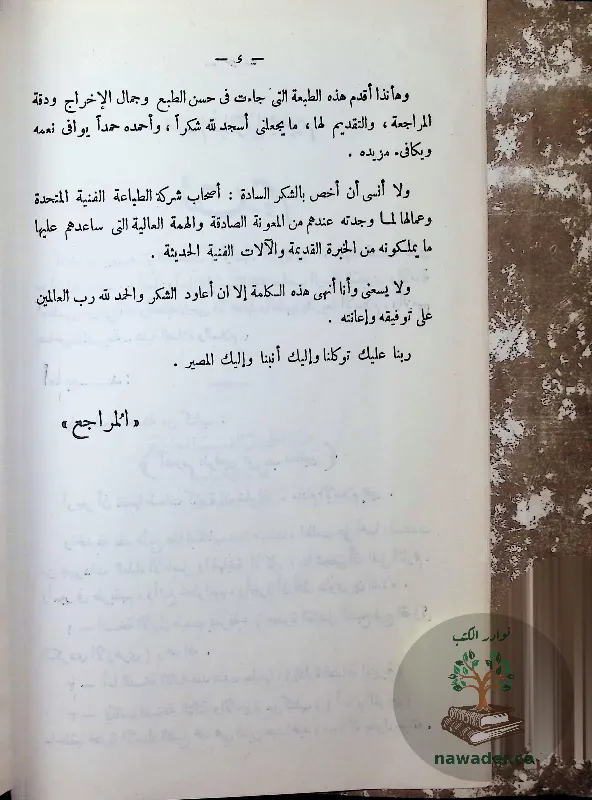 — ٤ —
وهأنذا أقدم هذه الطبعة التى جاءت فى حسن الطبع وجمال الإخراج ودقة
المراجعة ، والتقديم لها ، ما يجعلنى أسجد لله شكراً ، وأحمده حمداً يوافى نعمه
ويكافىء مزيده .
ولا أنسى أن أخص بالشكر السادة : أصحاب شركة الطباعة الفنية المتحدة
وعمالها لما وجدته عندهم من المعونة الصادقة والهمة العالية التى ساعدهم عليها
ما يملكونه من الخبرة القديمة والآلات الفنية الحديثة .
ولا يسعنى وأنا أنهى هذه الكلمة إلا ان أعاود الشكر والحمد لله رب العالمين
على توفيقه وإعانته .
ربنا عليك توكلنا وإليك أنبنا وإليك المصير .
« المراجع »
نوادر الكتب
nawader.ca